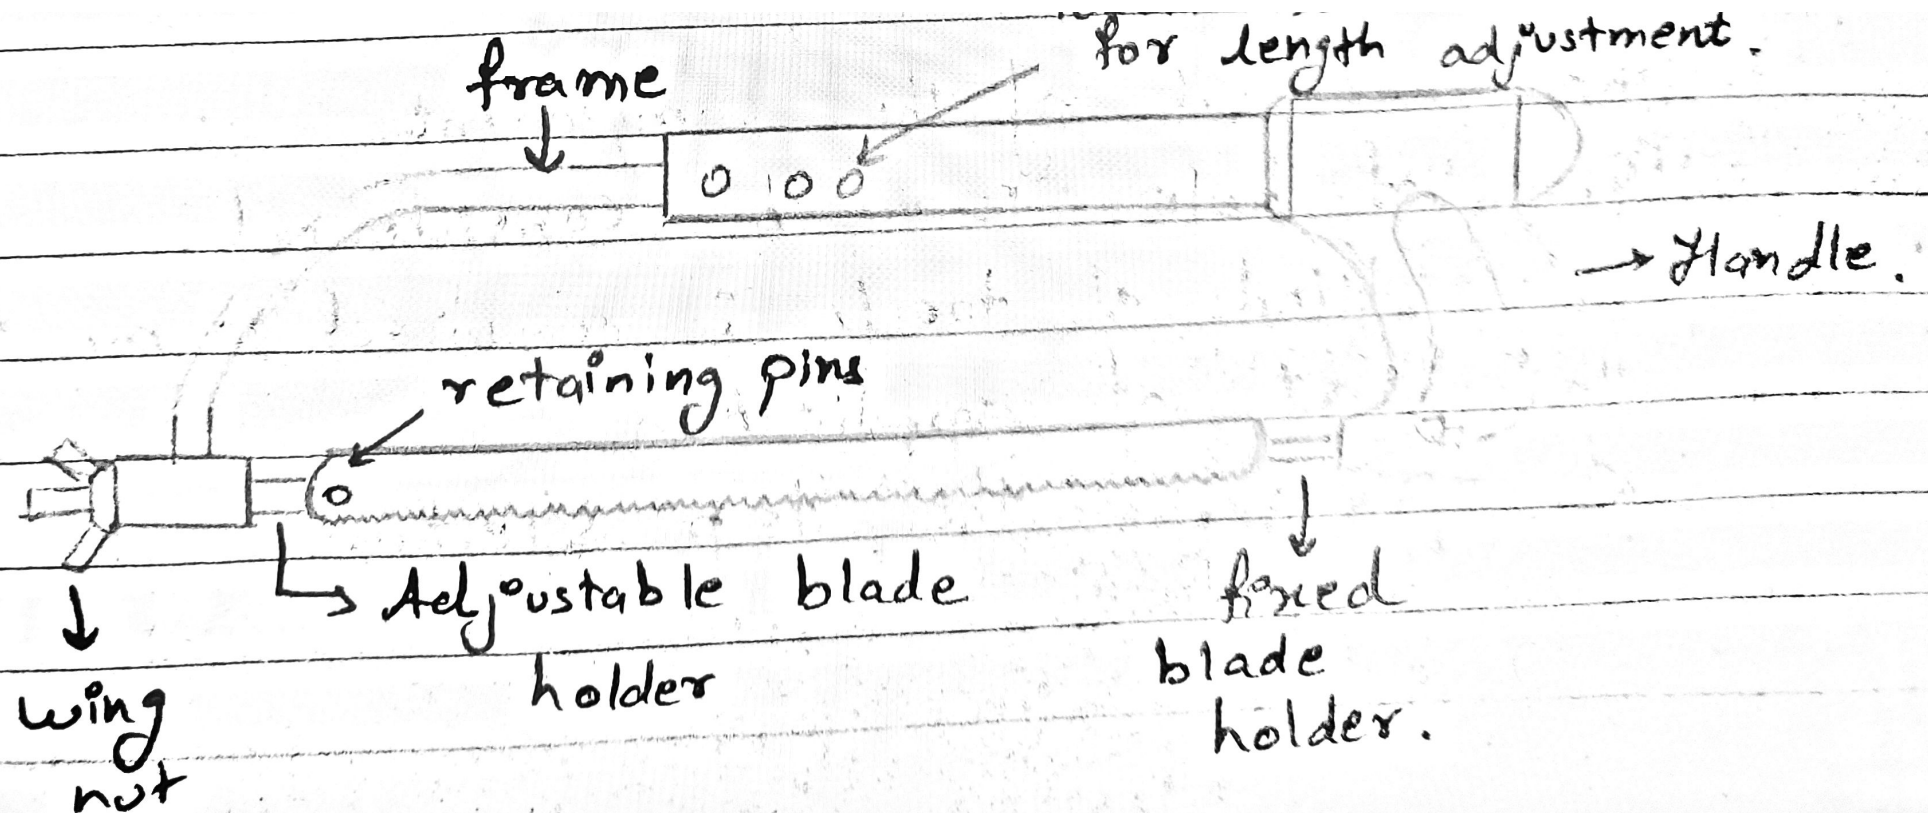 for length adjustment.
frame
→ Handle.
retaining pins
Adjustable blade
holder
fixed
blade
holder.
wing
nut